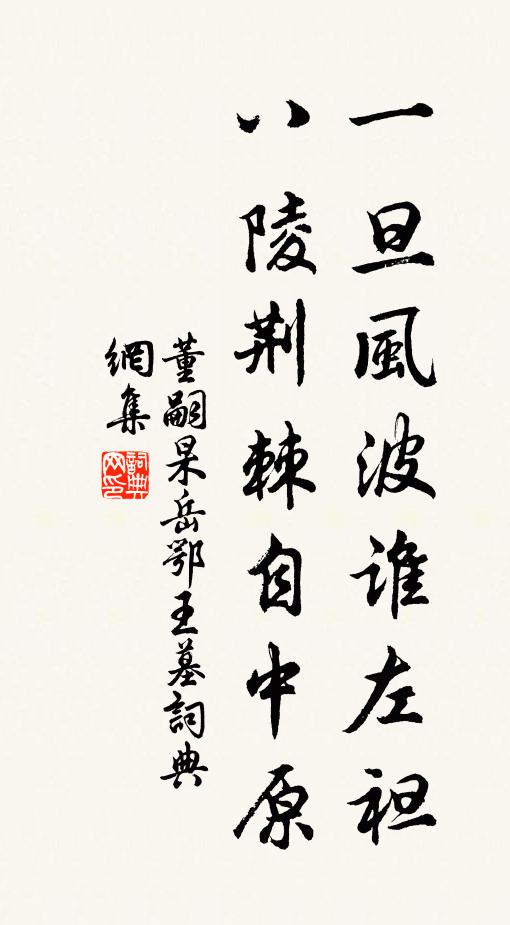 一旦風波誰左袒
八陵荆棘自中原
董嗣杲岳鄂王墓詞典
網集
詞典網印